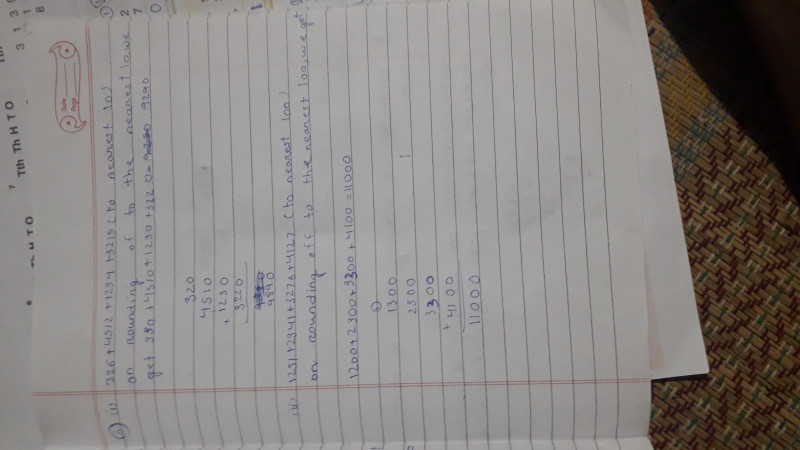 Date
Page
6 (i) 326+4512+1234+3219 (to nearest 10)
on rounding of to the nearest 10, we
get 330 + 4510+1230 +3220 = 9290
320
4510
+ 1230
3220
9890
(ii) 1231+2341+3276+4127 (to nearest 100)
on rounding off to the nearest 100, we get
1200+2300+3300+4100=11000
1300
2300
3300
+ 4100
11000
Tth Th H T O
H T O